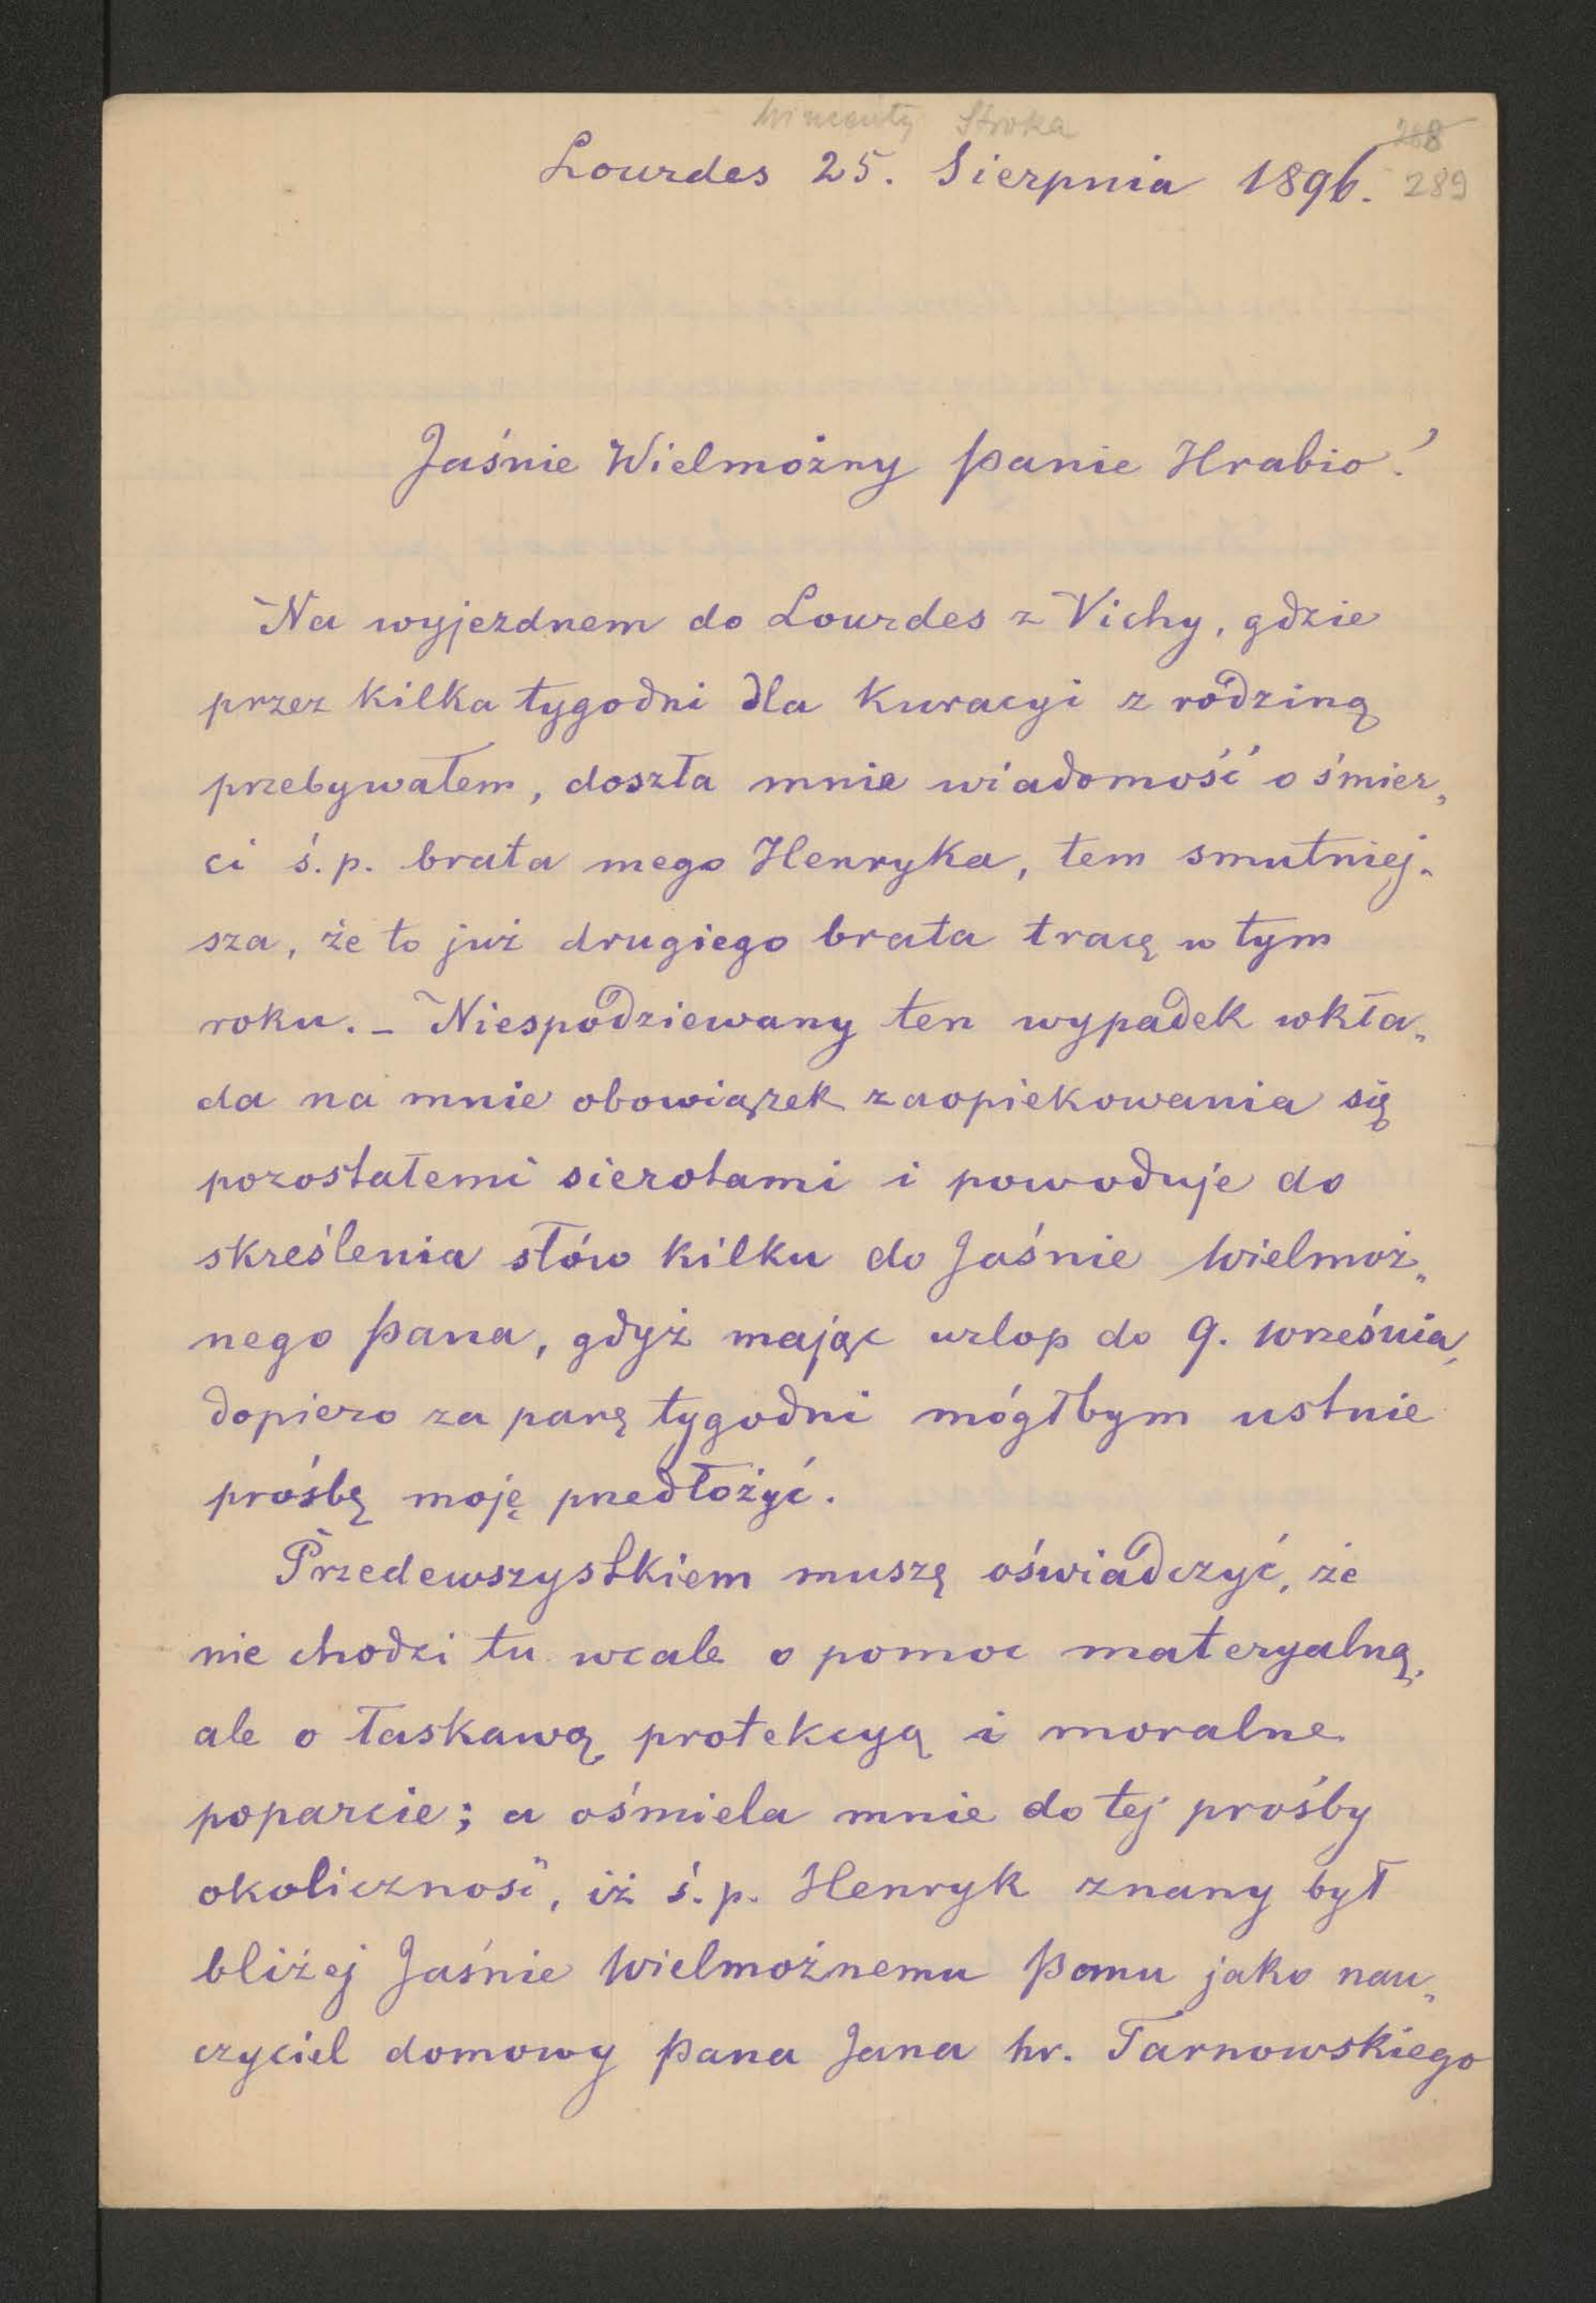 Wincenty Stroka
268
Lourdes 25. Sierpnia 1896. 289
Jaśnie Wielmożny Panie Hrabio!
Na wyjezdnem do Lourdes z Vichy, gdzie
przez kilka tygodni dla kuracyi z rodziną
przebywałem, doszła mnie wiadomość o śmier„
ci ś.p. brata mego Henryka, tem smutniej„
sza, że to już drugiego brata tracę w tym
roku. – Niespodziewany ten wypadek wkła„
da na mnie obowiązek zaopiekowania się
pozostałemi sierotami i powoduje do
skreślenia słów kilku do Jaśnie Wielmoż„
nego Pana, gdyż mając urlop do 9. września,
dopiero za parę tygodni mógłbym ustnie
prośbę moję przedłożyć.
Przedewszystkiem muszę oświadczyć, że
nie chodzi tu wcale o pomoc materyalną,
ale o łaskawą protekcyą i moralne
poparcie; a ośmiela mnie do tej prośby
okoliczność, iż ś.p. Henryk znany był
bliżej Jaśnie Wielmożnemu Panu jako nau„
czyciel domowy Pana Jana hr. Tarnowskiego